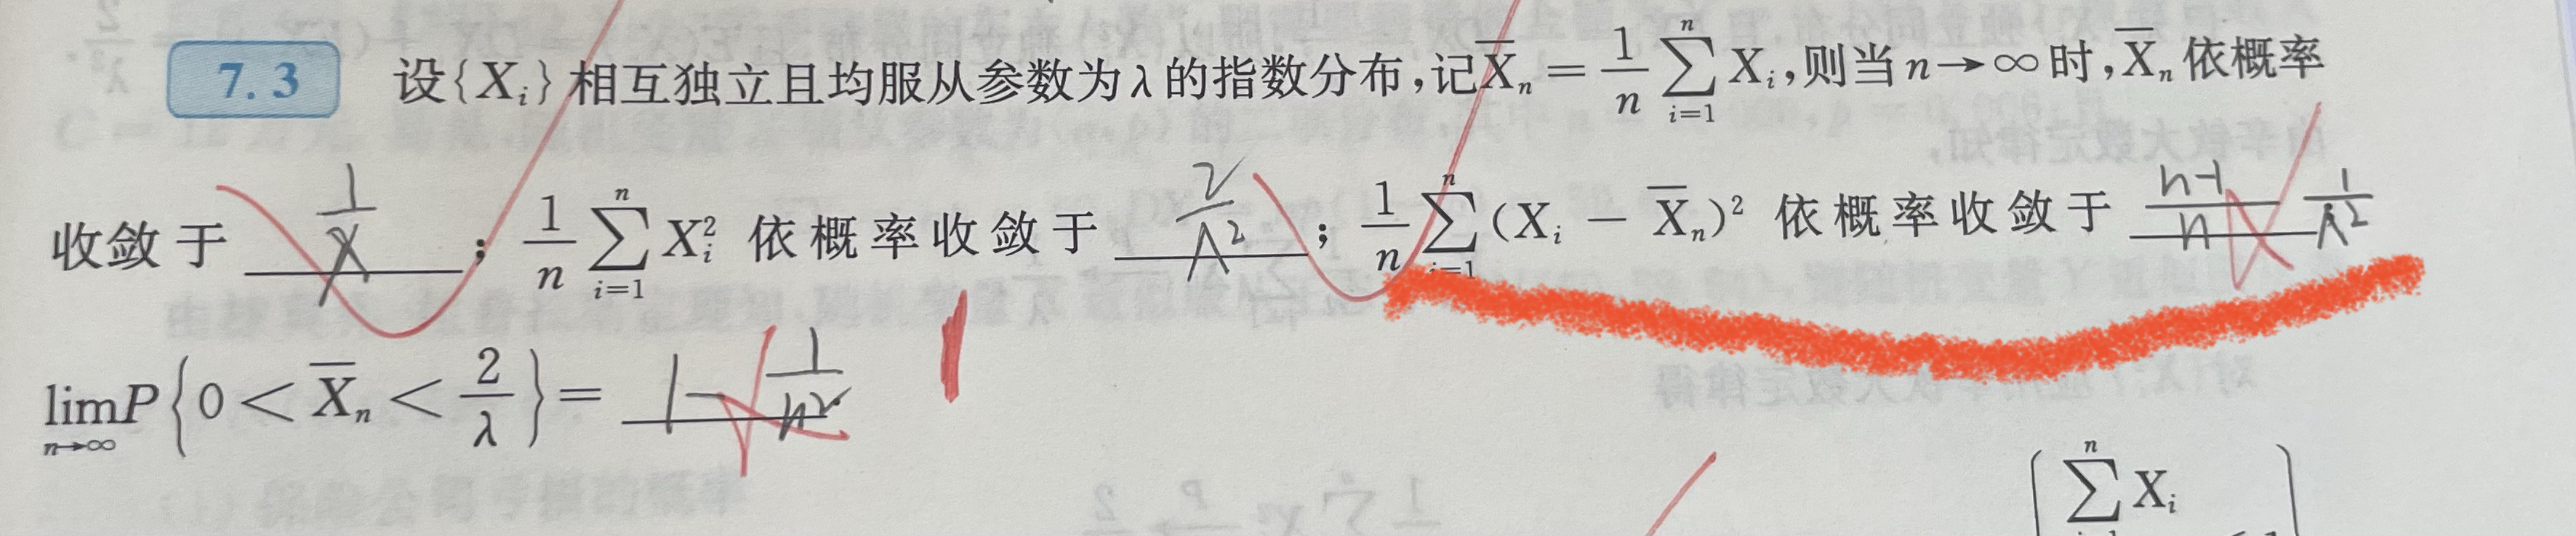 7.3 设{X_i}相互独立且均服从参数为λ的指数分布,记X̄_n = 1/n ∑_{i=1}^{n} X_i,则当n→∞时,X̄_n依概率
收敛于 1/λ ; 1/n ∑_{i=1}^{n} X_i^2 依概率收敛于 2/λ^2 ; 1/n ∑_{i=1}^{n} (X_i − X̄_n)^2 依概率收敛于 n-1/n 1/λ^2
lim_{n→∞} P{0 < X̄_n < 2/λ} = 1 - 1/n^2 1
∑^{n} X_i